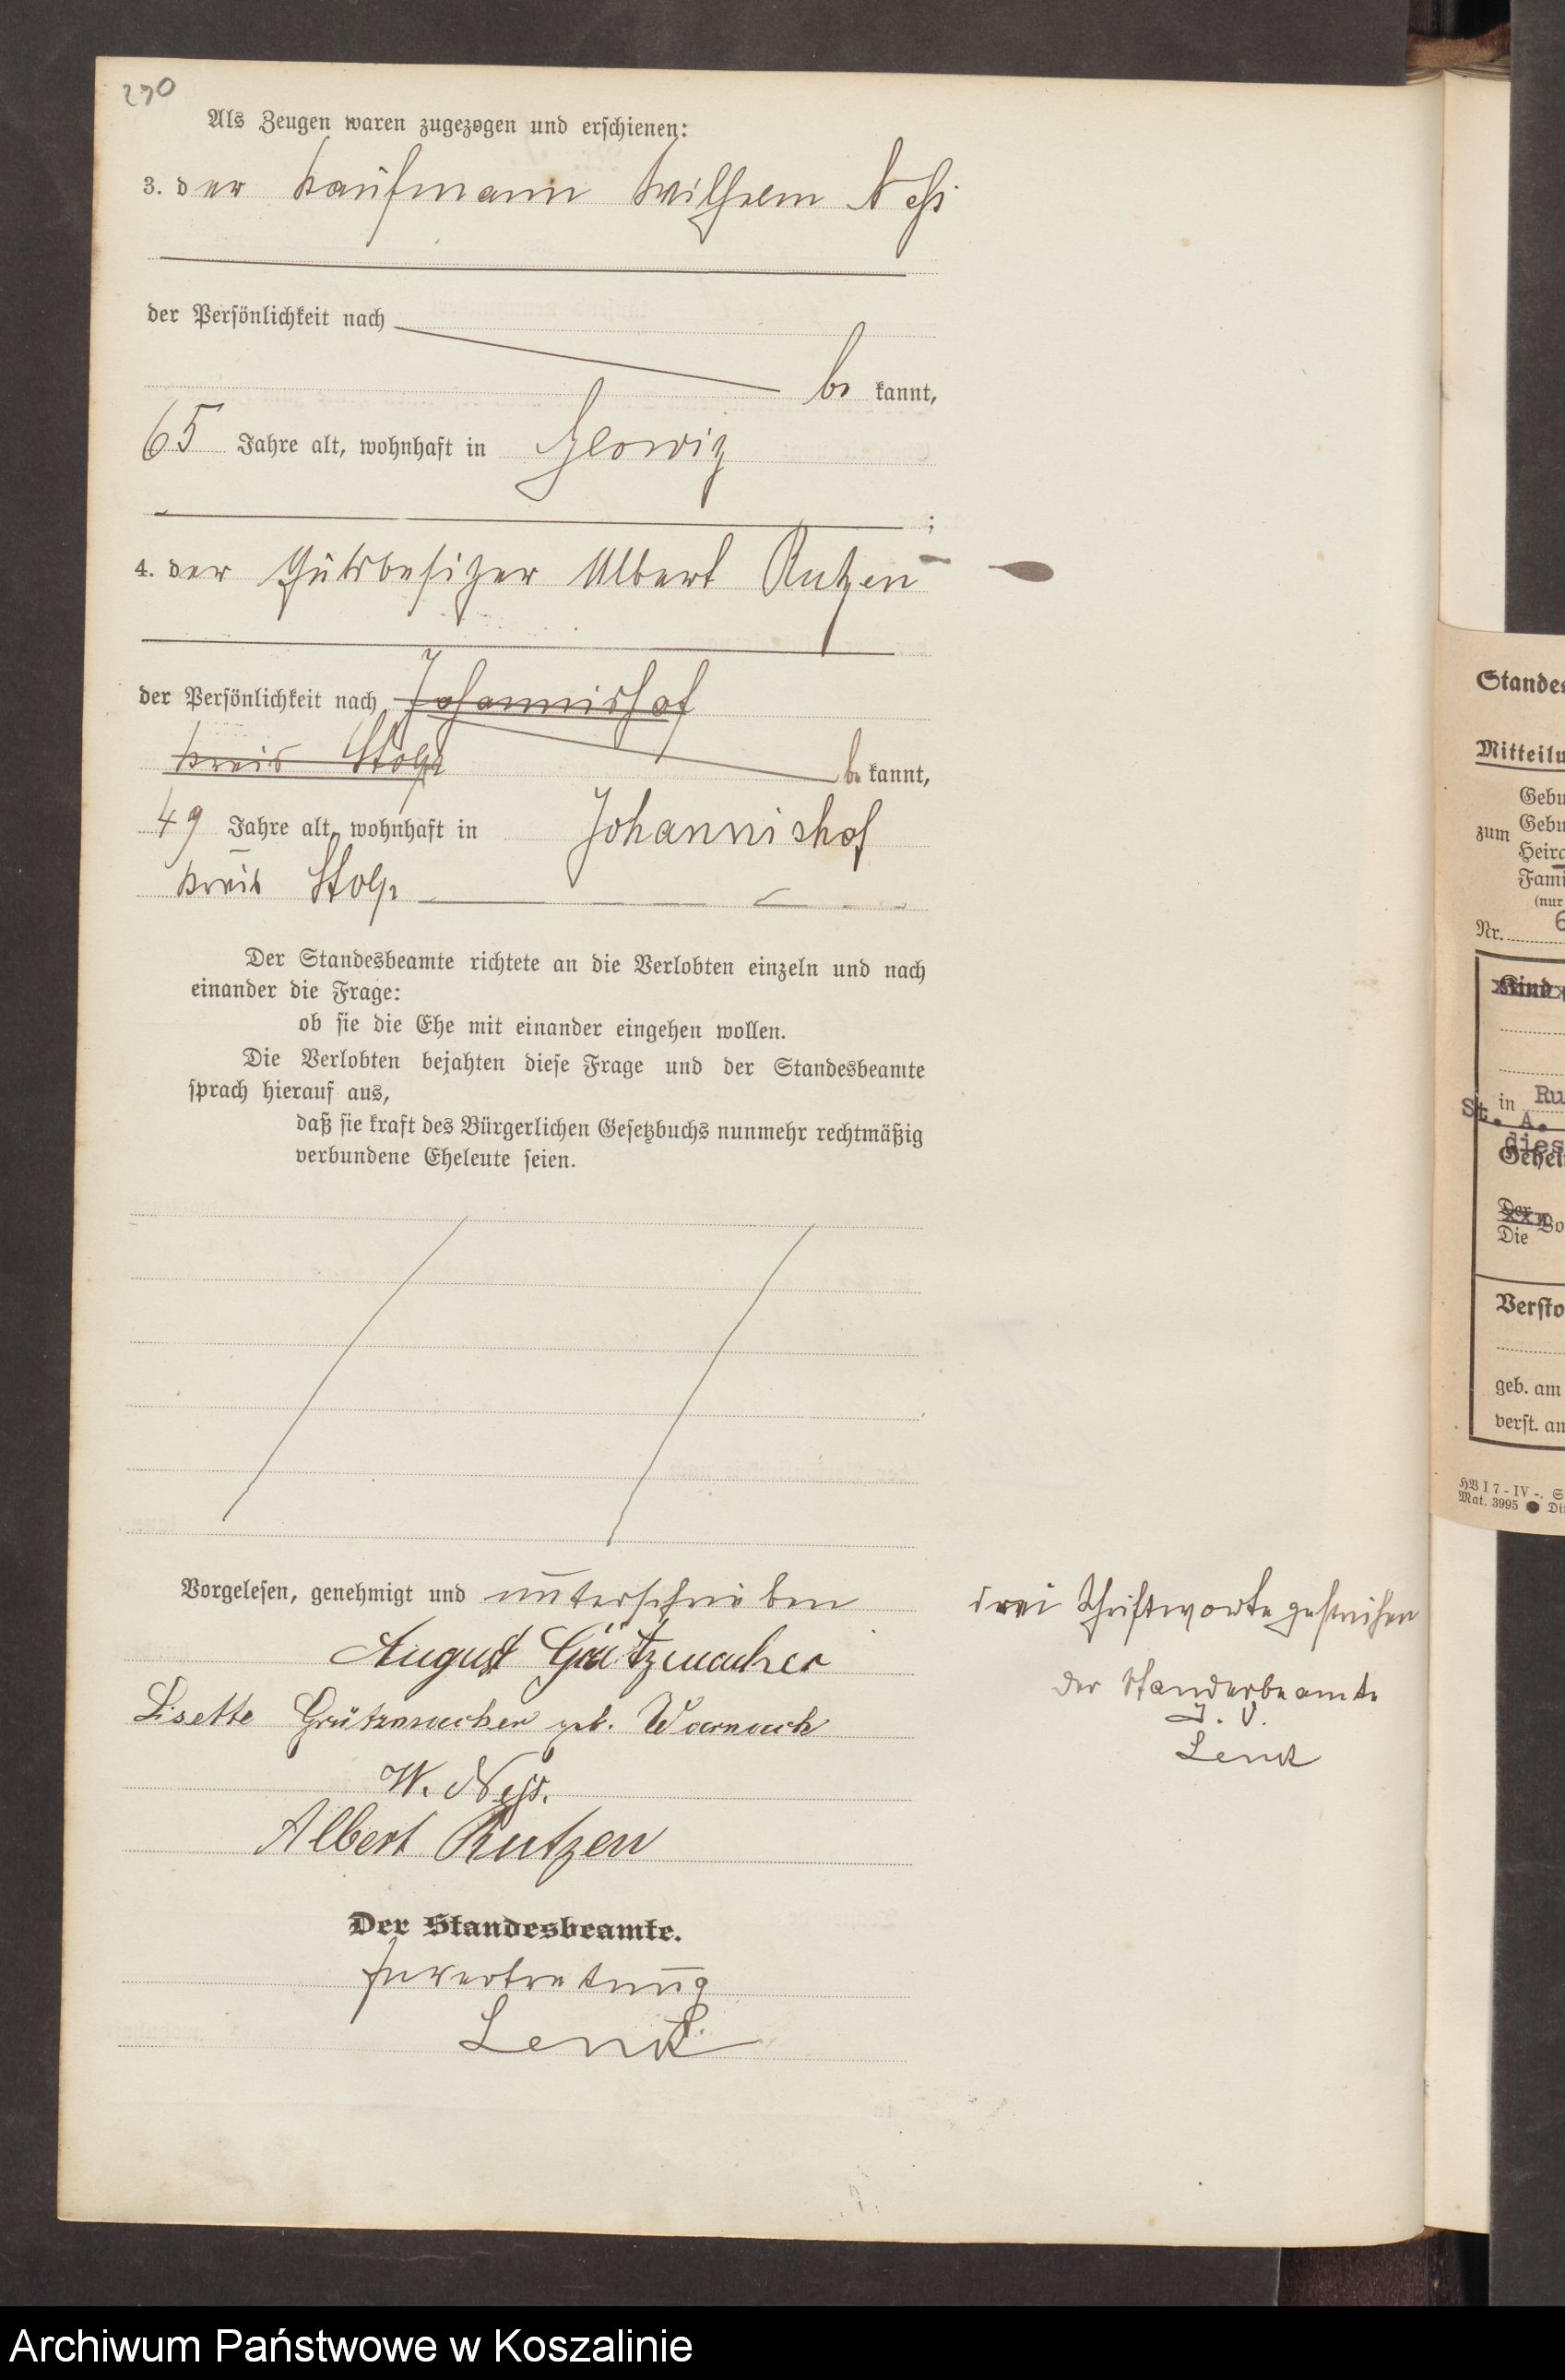 290
Als Zeugen waren zugezogen und erschienen:
3. der Kaufmann Wilhelm Neß
der Persönlichkeit nach
be kannt,
65 Jahre alt, wohnhaft in Glowitz
;
4. der Gutsbesitzer Albert Rutzen
der Persönlichkeit nach Johannishof
Kreis Stolp be kannt,
49 Jahre alt, wohnhaft in Johannishof
Kreis Stolp
Der Standesbeamte richtete an die Verlobten einzeln und nach
einander die Frage:
ob sie die Ehe mit einander eingehen wollen.
Die Verlobten bejahten diese Frage und der Standesbeamte
sprach hierauf aus,
daß sie kraft des Bürgerlichen Gesetzbuchs nunmehr rechtmäßig
verbundene Eheleute seien.
Vorgelesen, genehmigt und unterschrieben
August Grützmacher
Lisette Grützmacher geb. Warnack
W. Neß.
Albert Rutzen
Der Standesbeamte.
In Vertretung
drei Schriftworte gestrichen
Der Standesbeamte
I. V.
Standes
Mitteilu
Gebu
zum Gebu
Heira
Fami
(nur
Nr. 6
Kind
in Ru
St. A.
dies
Der
Die Vo
Versto
geb. am
verst. am
HB I 7 - IV -. S
Mat. 3995 Di
Archiwum Państwowe w Koszalinie